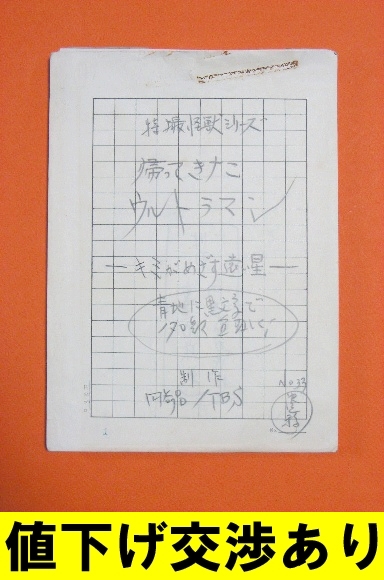 特撮怪獣シリーズ
帰ってきた
ウルトラマン
―キミがめざす遠い星―
青地に黒文字で
制作
円谷プロ/TBS
No 33
値下げ交渉あり